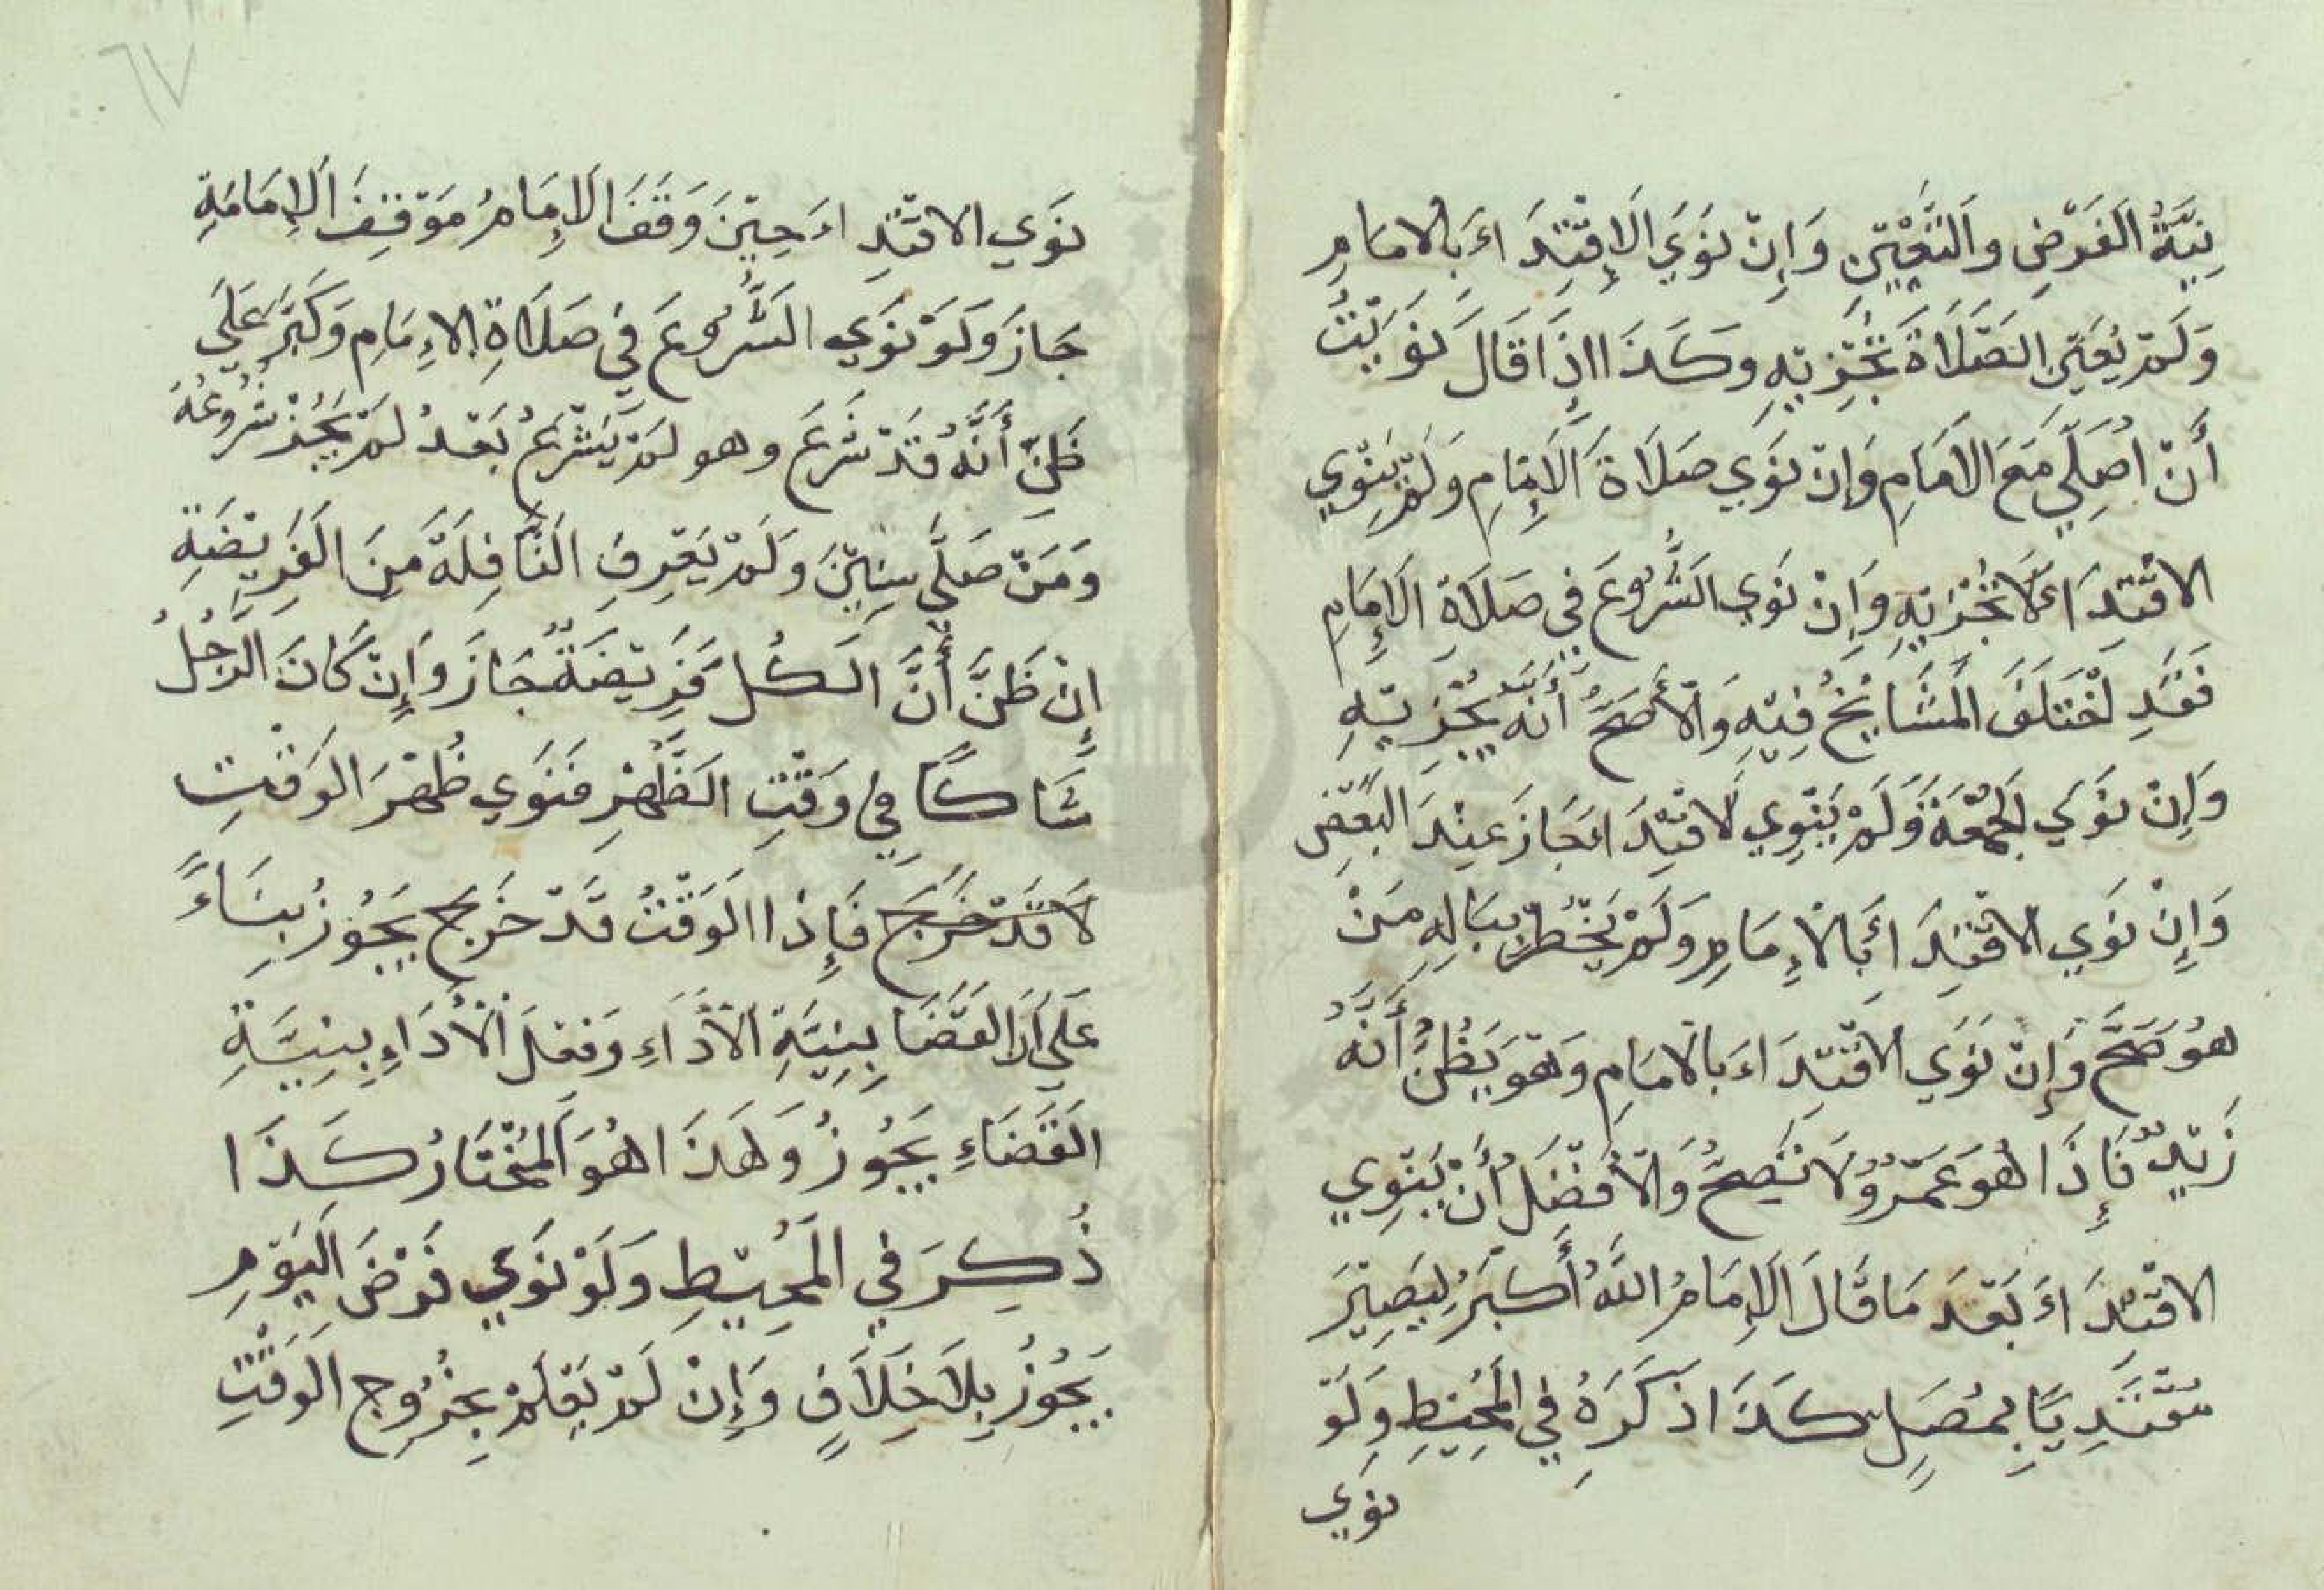 نِيَّةُ الفَرْضِ والتَّعْيِينِ وَإِنْ نَوَي الْإِقْتِدَاءَ بِالامَامِ
وَلَمْ يُعَيِّنِ الصَّلَاةَ تُجْزِيهِ وكَذَا اإِذَا قَالَ نَوَيْتُ
أَنْ اُصَلِّي مَعَ الامَامِ وَإِنْ نَوَي صَلَاةَ الْإِمَامِ وَلَمْ يَنْوِي
الاقْتِدَاءَ لَا تُجْزِيهِ وَإِنْ نَوَي الشُّرُوعَ فِي صَلَاةِ الْإِمَامِ
فَقَدِ اخْتَلَفَ الْمَشَايِخُ فِيْهِ وَالْأَصَحُّ أَنَّهُ يُجْزِيْهِ
وَإِنْ نَوَي الجُمْعَةَ وَلَمْ يَنْوِي لاقْتِدَاءَ جَازَ عِنْدَ الْبَعْضِ
وَإِنْ نَوَي الاقْتِدَاءَ بِالْإِمَامِ وَلَمْ يَخْطُرْ بِبَالِهِ مَنْ
هُوَ صَحَّ وَإِنْ نَوَي الاقْتِدَاءَ بِالامَامِ وَهْوَ يَظُنُّ أَنَّهُ
زَيْدٌ فَإِذَا هُوَ عَمْرٌو لَا يَصِحُّ وَالْأَفْضَلُ أَنْ يَنْوِي
الاقْتِدَاءَ بَعْدَ مَا قَالَ الْإِمَامُ اللَّهُ أَكْبَرُ لِيَصِيْرَ
مُقْتَدِيًا بِمُصَلٍ كَذَا ذَكَرَهُ فِي الْمُحِيْطِ وَلَوْ
نوي
٦٧
نَوَي الاقْتِدَاءَ حِيْنَ وَقَفَ الْإِمَامُ مَوْقِفَ الْإِمَامَةِ
جَازَ وَلَوْ نَوَي الشُّرُوعَ فِي صَلَاةِ الْإِمَامِ وَكَبَّرَ عَلَي
ظَنِّ أَنَّهُ قَدْ شَرَعَ وهو لَمْ يَشْرَعْ بَعْدُ لَمْ يَجُزْ شُرُوعُهُ
وَمَنْ صَلَّي سِنِيْنَ وَلَمْ يَعْرِفِ النَّافِلَةَ مِنَ الْفَرِيْضَةِ
إِنْ ظَنَّ أَنَّ الْكُلَّ فَرِيْضَةٌ جَازَ وَإِنْ كَانَ الرَّجُلُ
شَاكًا فِي وَقْتِ الظُّهْرِ فَنَوَي ظُهْرَ الْوَقْتِ
لَا قَدْ خَرَجَ فَإِذَا الْوَقْتُ قَدْ خَرَجَ يَجُوزُ بِنَاءً
عَلَي أَنَّ الْقَضَا بِنِيَّةِ الْأَدَاءِ وَفِعْلَ الْأَدَاءِ بِنِيَّةِ
الْقَضَاءِ يَجُوزُ وَهَذَا هُوَ الْمُخْتَارُ كَذَا
ذُكِرَ فِي الْمُحِيْطِ وَلَوْ نَوَي فَرْضَ الْيَوْمِ
يَجُوزُ بِلَا خِلَافٍ وَإِنْ لَمْ يَعْلَمْ بِخُرُوجِ الْوَقْتِ